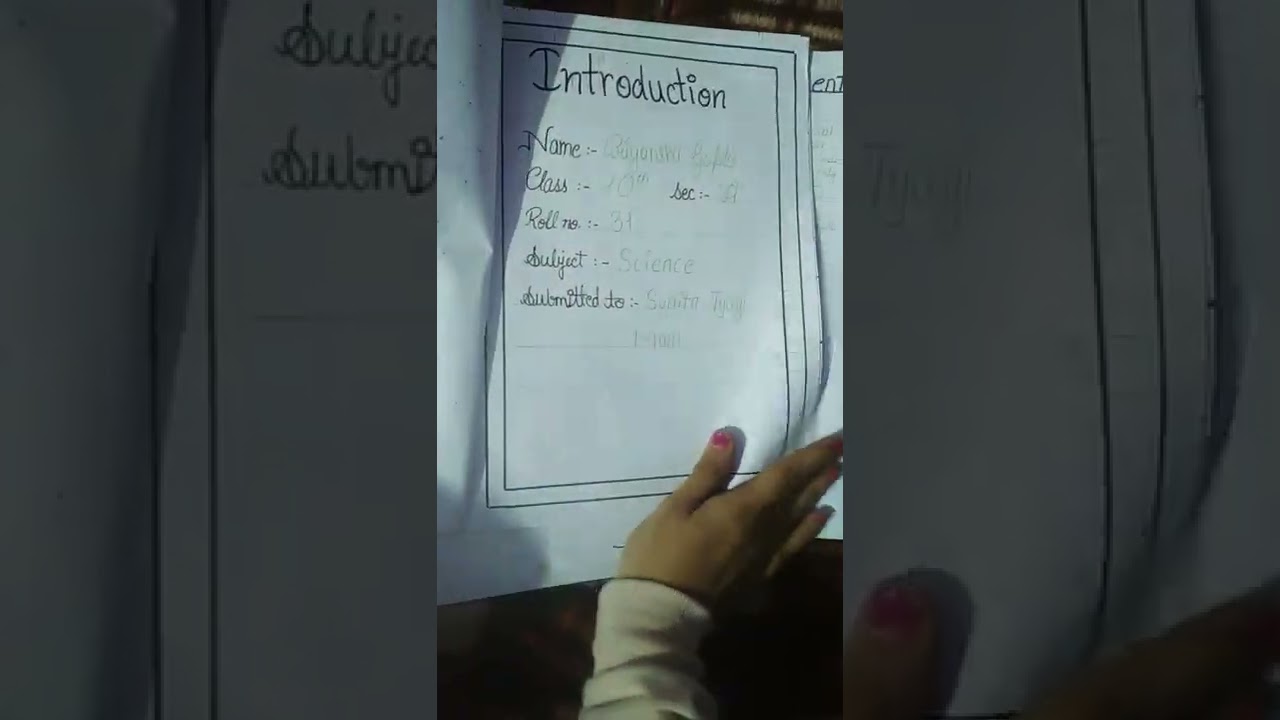 Introduction
Name :-
Class :- 10th Sec :- A
Roll no. :- 31
Subject :- Science
Submitted to :- Sunita Tyagi